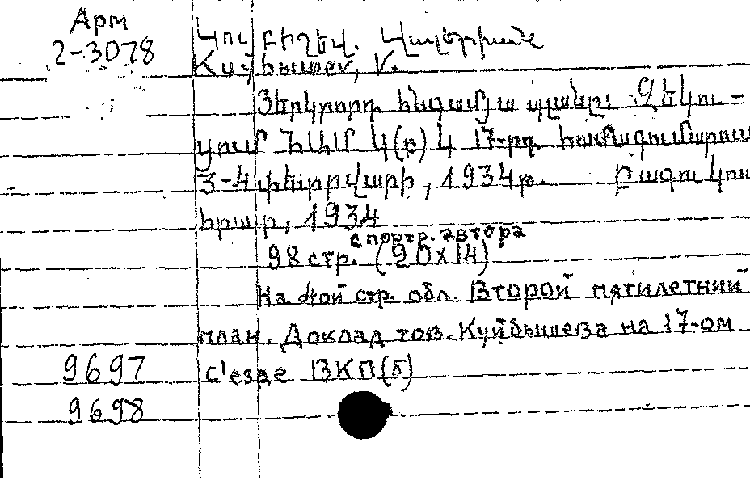 Арм
2-3078
Կույբիշեվ. Վալերիան
Куйбышев, V.
Յերկրորդ հնգամյա պլանը: Զեկու-
ցում ՀամԿ Կ(բ) Կ 17-րդ համագումարում
3-4 փետրվարի, 1934թ. Բագու Կուս
հրատ, 1934
с портр. автора
98 стр. (20х14)
На 4ой стр. обл. Второй пятилетний
план. Доклад тов. Куйбышева на 17-ом
с'езде ВКП(б)
9697
9698